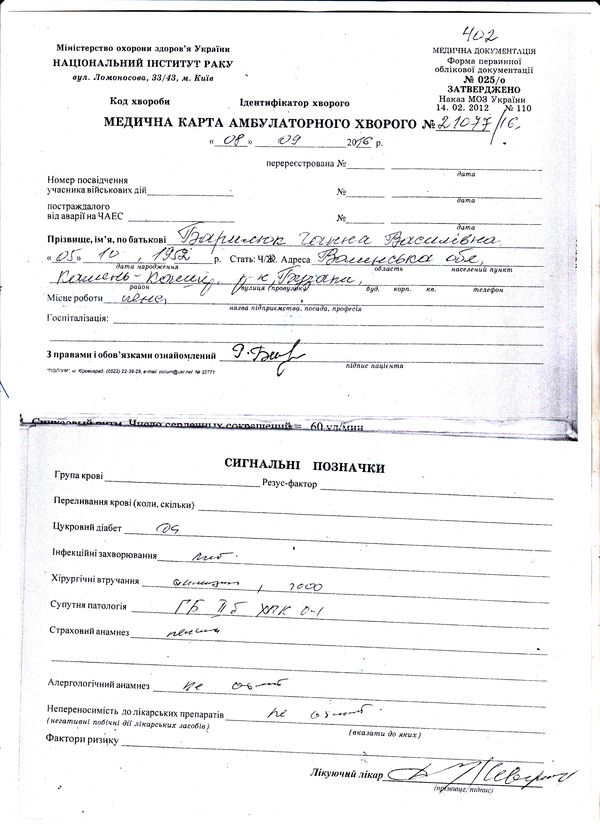 402
Міністерство охорони здоров'я України
НАЦІОНАЛЬНИЙ ІНСТИТУТ РАКУ
вул. Ломоносова, 33/43, м. Київ
МЕДИЧНА ДОКУМЕНТАЦІЯ
Форма первинної
облікової документації
№ 025/о
ЗАТВЕРДЖЕНО
Наказ МОЗ України
14. 02. 2012 № 110
Код хвороби Ідентифікатор хворого
МЕДИЧНА КАРТА АМБУЛАТОРНОГО ХВОРОГО № 21077/16
« 08 » 09 2016 р.
перереєстрована №
дата
Номер посвідчення
учасника військових дій №
дата
постраждалого
від аварії на ЧАЕС №
дата
Прізвище, ім'я, по батькові Ганна Василівна
« 05 » 10, 1952 р. Стать: Ч/Ж. Адреса Волинська обл,
дата народження область населений пункт
Камень-Каш, р-н,
район вулиця (провулок) буд. корп. кв. телефон
Місце роботи пенс,
назва підприємства, посада, професія
Госпіталізація:
З правами і обов'язками ознайомлений
підпис пацієнта
"ПОЛІУМ" м. Кіровоград, (0522) 22-39-29, e-mail: polium@ukr.net № 32771
Синусовый ритм. Число сердечных сокращений = 60 уд/мин
СИГНАЛЬНІ ПОЗНАЧКИ
Група крові Резус-фактор
Переливання крові (коли, скільки)
Цукровий діабет
Інфекційні захворювання
Хірургічні втручання , 2000
Супутня патологія ГБ ІІ б ХНК 0-1
Страховий анамнез
Алергологічний анамнез не
Непереносимість до лікарських препаратів не
(негативні побічні дії лікарських засобів) (вказати до яких)
Фактори ризику
Лікуючий лікар
(прізвище, підпис)